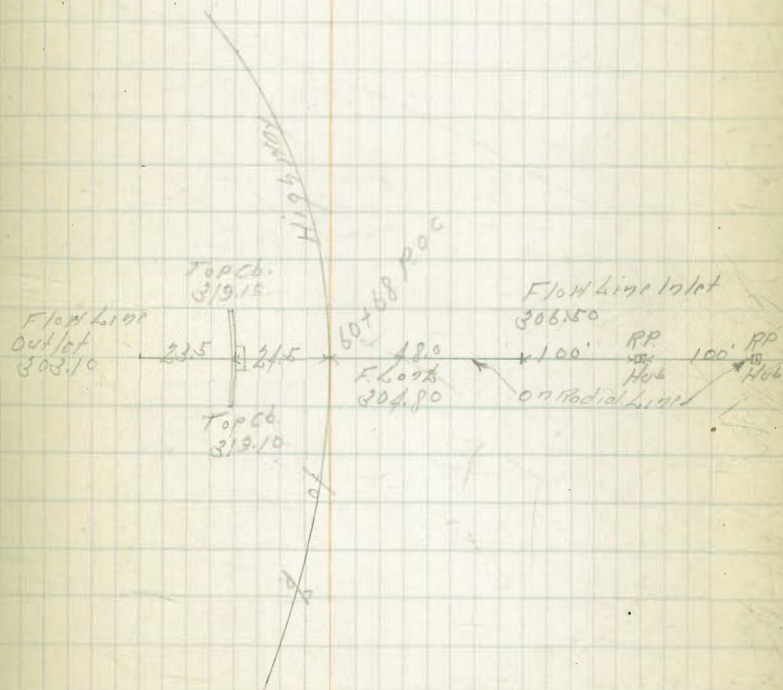 Highway
60+68 P.O.C
Top Cb.
319.15
Flow Line
Outlet
303.10
23.5
24.5
Top Cb.
319.10
48.0
304.80
Flow Line Inlet
306.50
100'
R.P.
Hub
100'
R.P.
Hub
on Radial Line